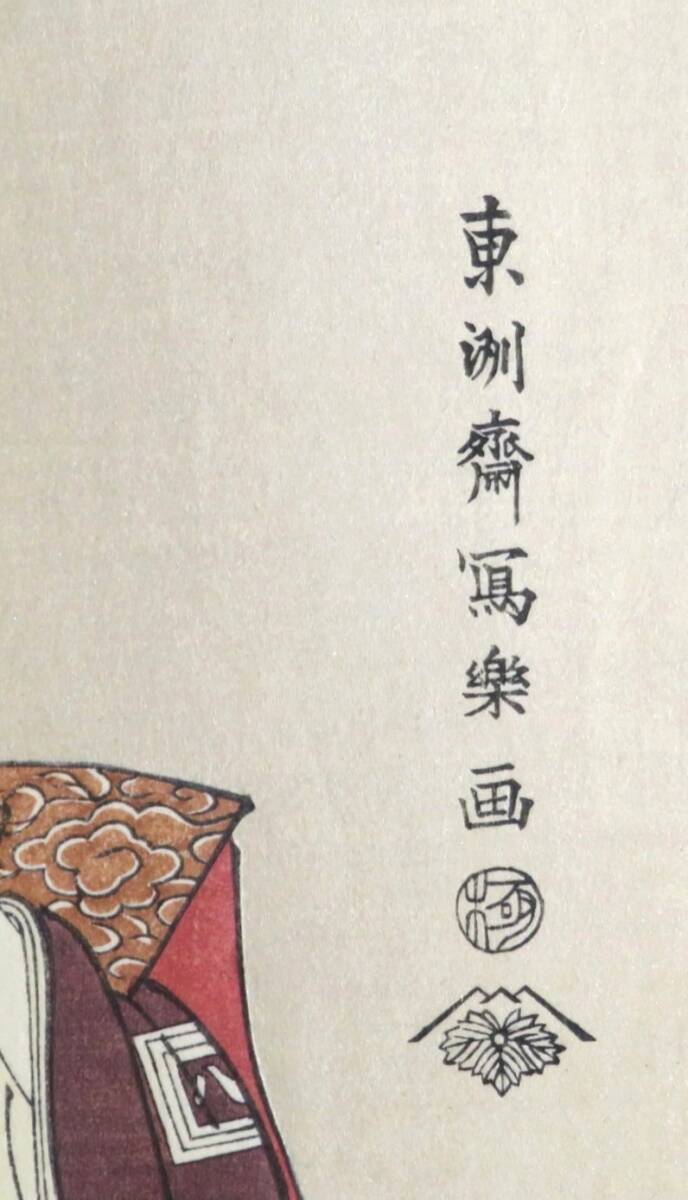 東洲齋寫樂画
極
八